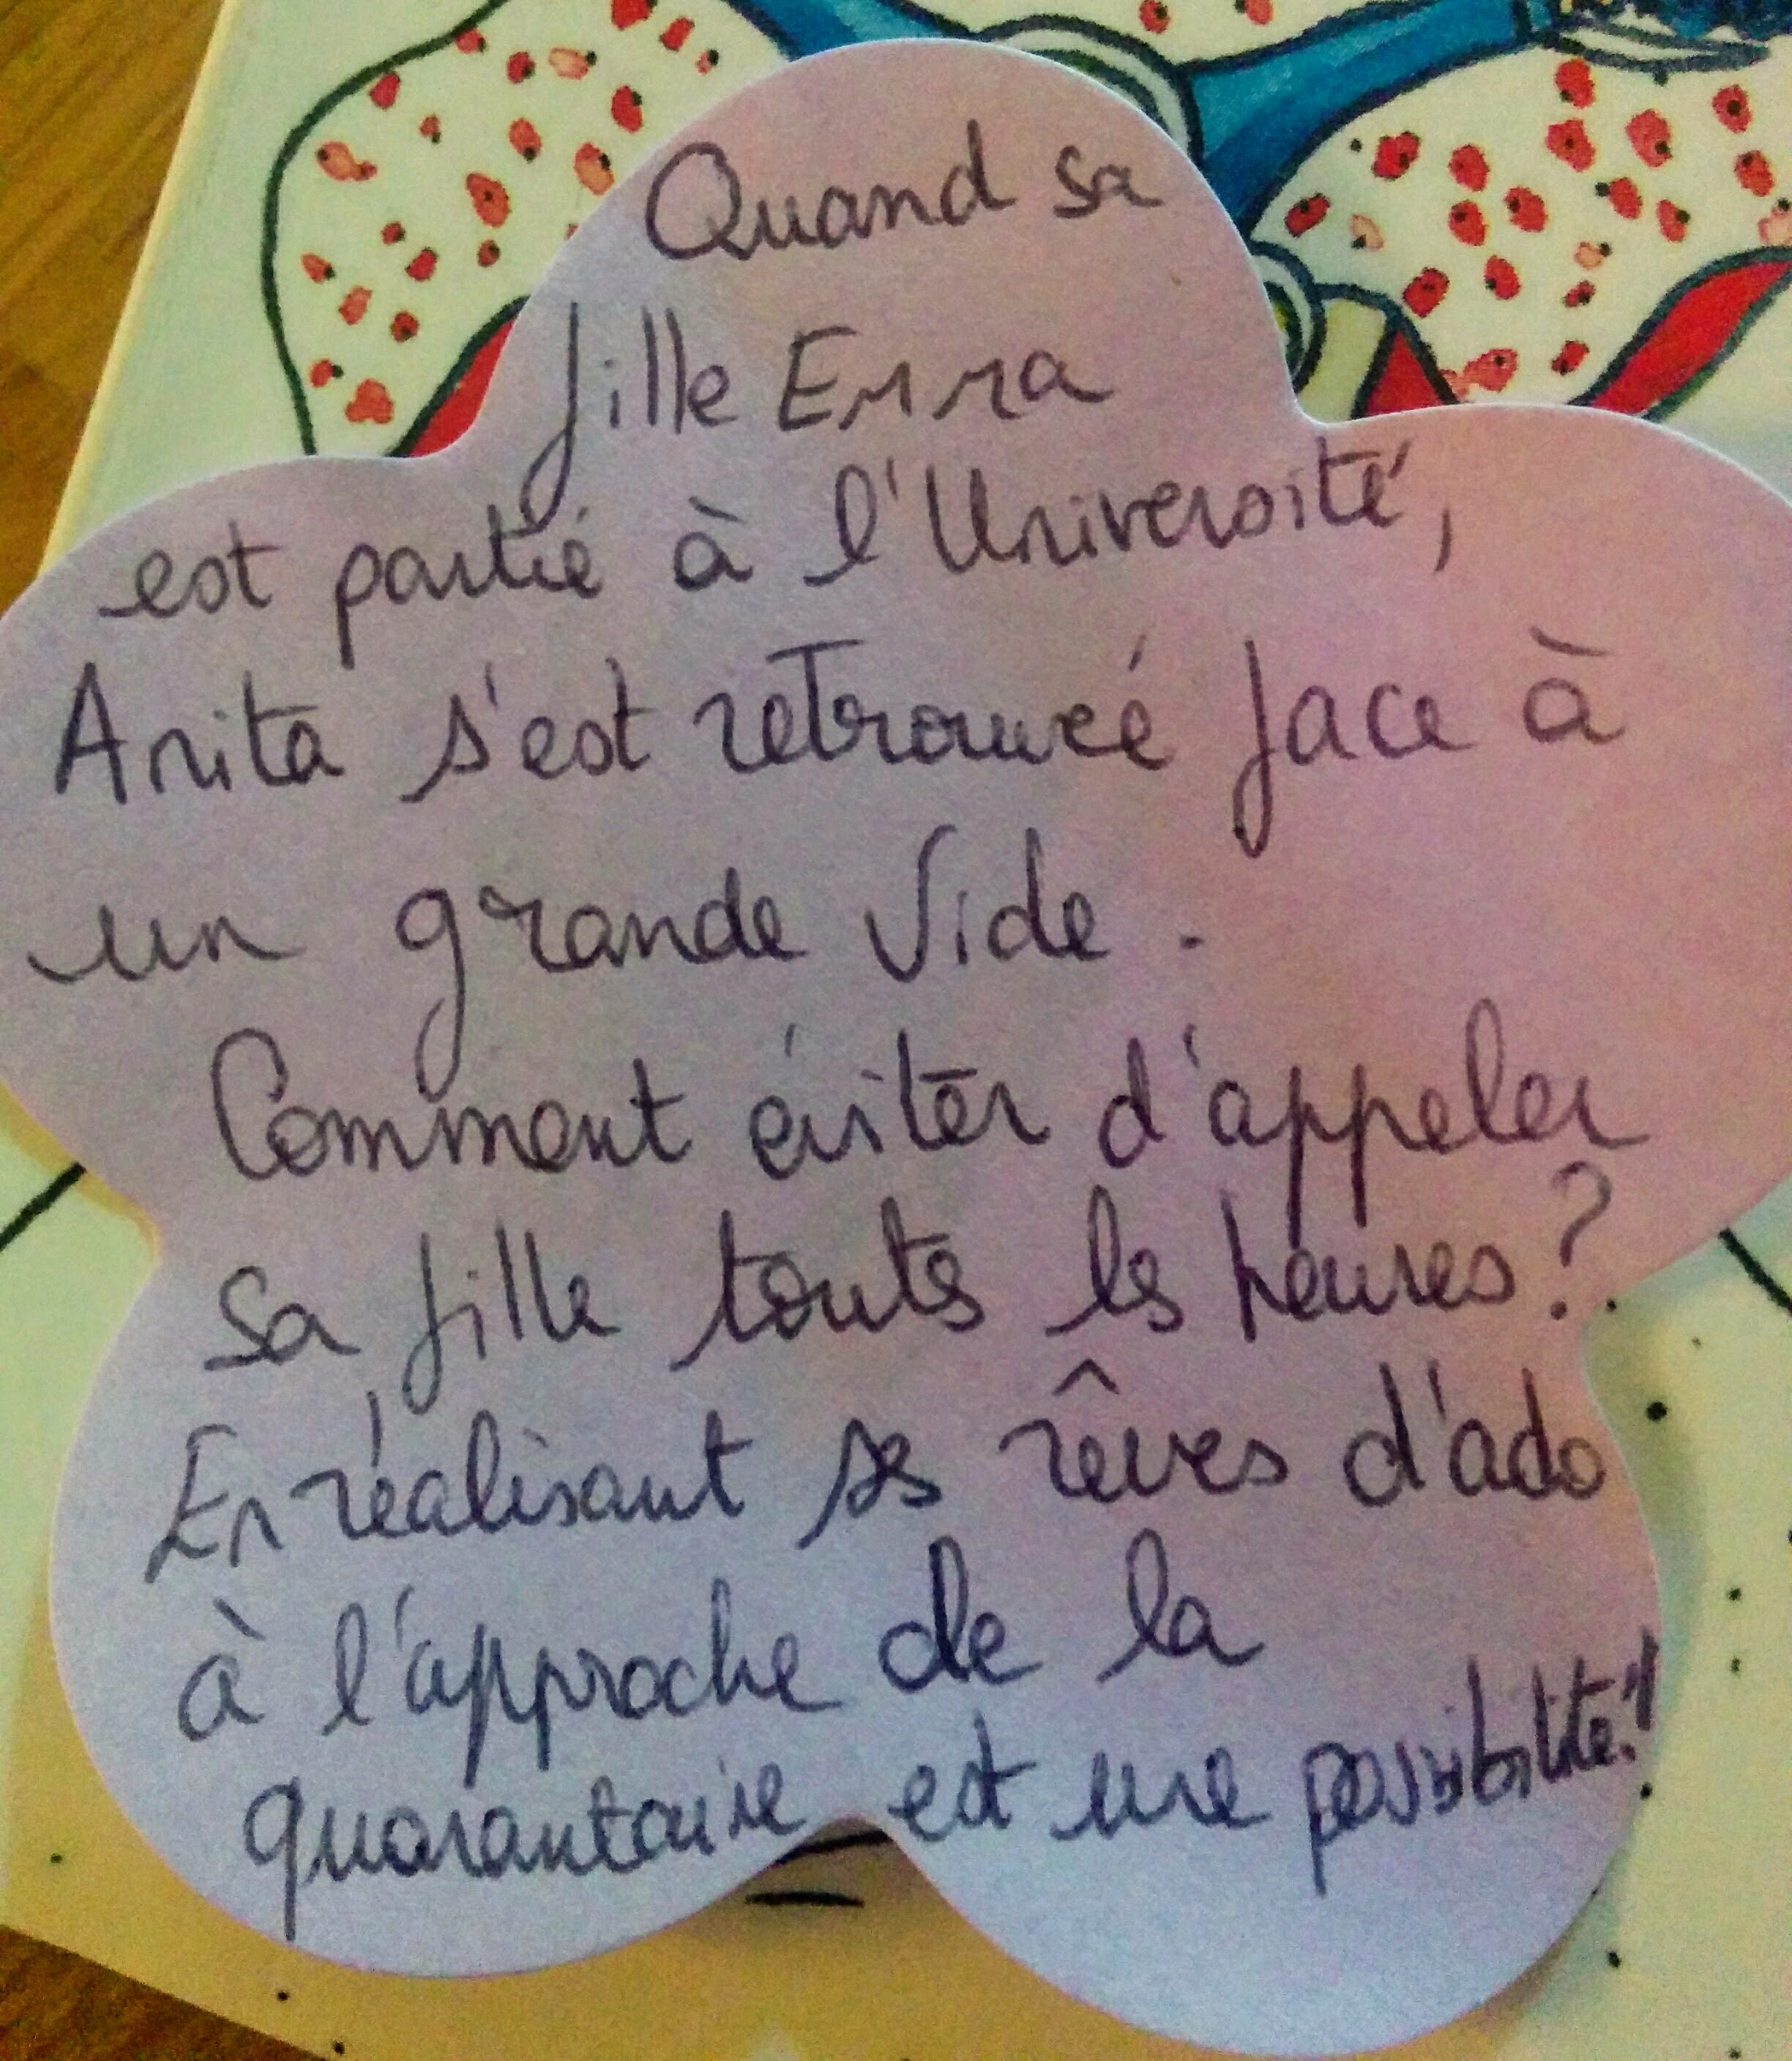 Quand sa
fille Emma
est partie à l'Université,
Anita s'est retrouvée face à
un grande vide.
Comment éviter d'appeler
sa fille toutes les heures ?
En réalisant ses rêves d'ado
à l'approche de la
quarantaine est une possibilité !